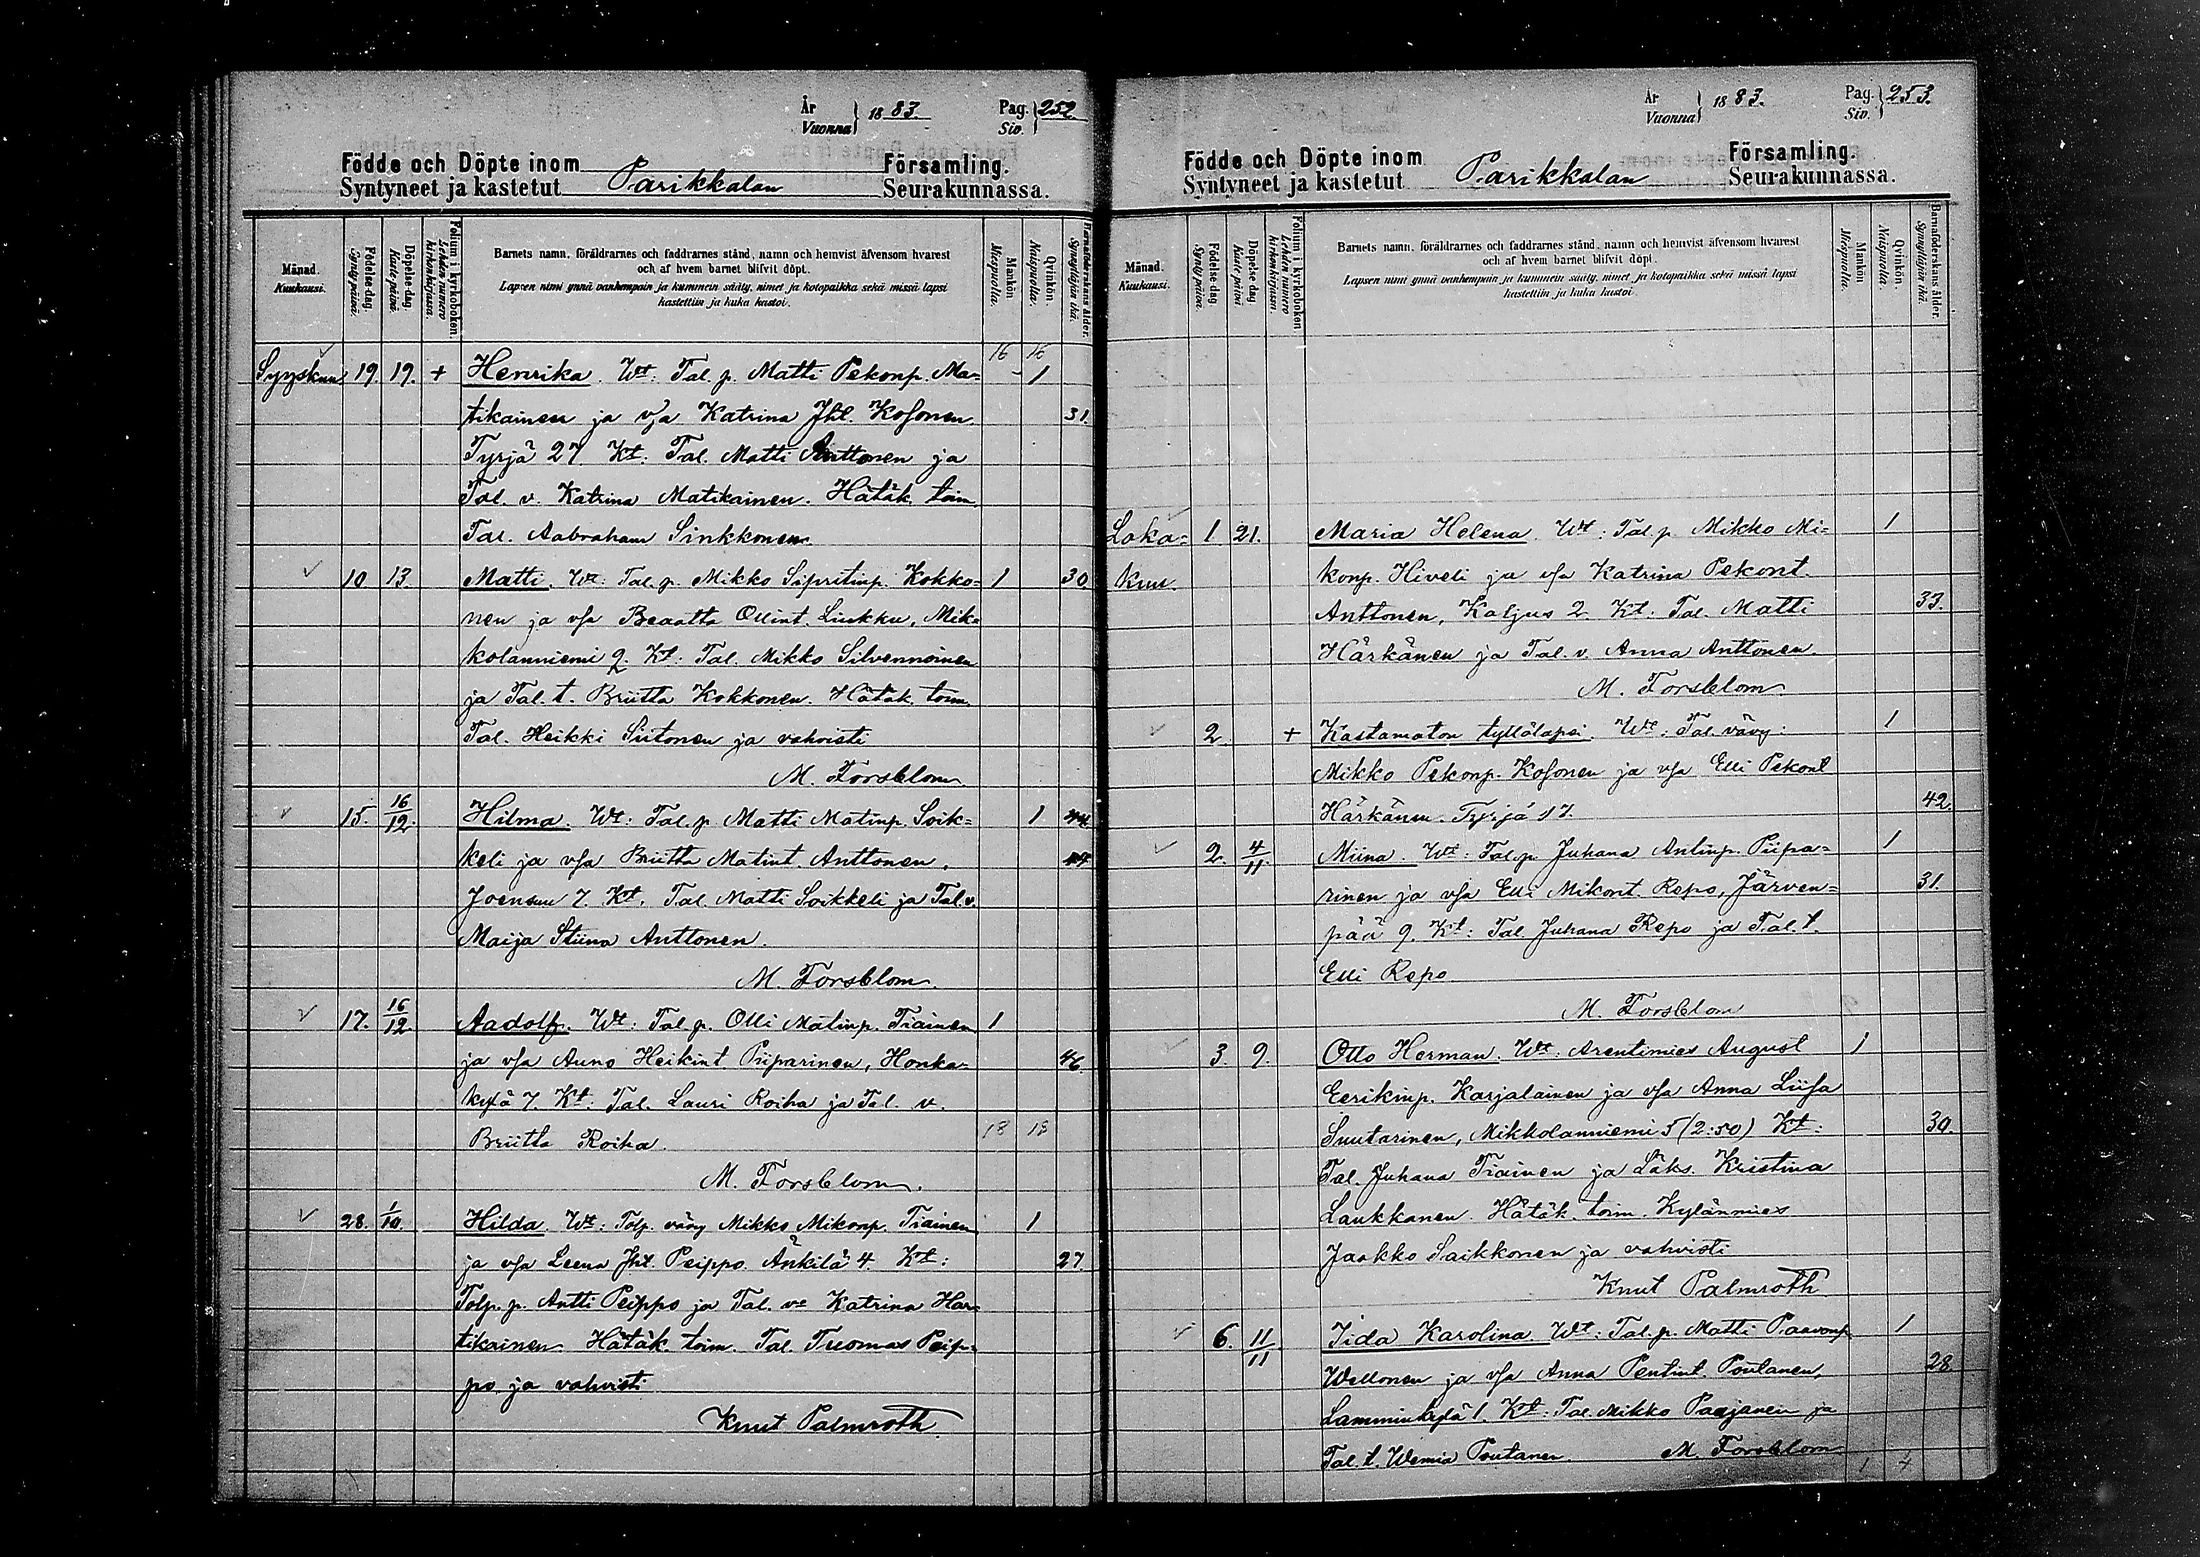 År Vuonna } 1883. Pag. Siv. } 252
Födde och Döpte inom Parikkalan Församling.
Syntyneet ja kastetut Seurakunnassa.
Månad. Kuukausi.
Födelse-dag. Syntypäivä.
Döpelse-dag. Kaste-päivä.
Folium i kyrkoboken. Lehden numero kirkonkirjassa.
Barnets namn, föräldrarnes och faddrarnes stånd, namn och hemvist äfvensom hvarest
och af hvem barnet blifvit döpt.
Lapsen nimi ynnä vanhempain ja kummein sääty, nimet ja kotopaikka sekä missä lapsi
kastettiin ja kuka kastoi.
Mankön. Miespuolia.
Qvinkön. Naispuolia.
Barnaföderskans ålder. Synnyttäjän ikä.
16 16
Syyskuu 19 19. + Henrika. Wt: Tal. p. Matti Pekonp. Ma= - 1
tikainen ja vsa Katrina Jht. Kosonen 31.
Tyrjä 27 Kt. Tal. Matti Anttonen ja
Tal. v. Katrina Matikainen. Hätäk. toim.
Tal. Aabraham Sinkkonen.
10 13. Matti. Wt: Tal. p. Mikko Sipritinp. Kokko= 1 30.
nen ja vsa Beaatta Ollint. Linkku, Mik=
kolanniemi 2. Kt: Tal. Mikko Silvennoinen
ja Tal. t. Briitta Kokkonen. Hätäk. toim.
Tal. Heikki Siitonen ja vahvisti
M. Forsblom.
15. 16/12. Hilma. Wt: Tal. p. Matti Matinp. Soik= 1
keli ja vsa Briitta Matint. Anttonen.
Joensuu 7. Kt. Tal. Matti Soikkeli ja Tal. v.
Maija Stiina Anttonen.
M. Forsblom.
17. 16/12. Aadolf. Wt: Tal. p. Olli Matinp. Tiainen 1
ja vsa Auno Heikint. Piiparinen, Honka= 46.
kylä 7. Kt: Tal. Lauri Roiha ja Tal. v.
Briitta Roiha. 18 18
M. Forsblom.
28. 1/10. Hilda. Wt: Tolp. vävy Mikko Mikonp. Tiainen 1
ja vsa Leena Jht. Peippo. Änkilä 4. Kt: 27.
Tolp. p. Antti Peippo ja Tal. v. Katrina Har=
tikainen. Hätäk. toim. Tal. Tuomas Peip=
po ja vahvisti
Knut Palmroth.
År Vuonna } 1883. Pag. Siv. } 253.
Födde och Döpte inom Parikkalan Församling.
Syntyneet ja kastetut Seurakunnassa.
Månad. Kuukausi.
Födelse-dag. Syntypäivä.
Döpelse-dag. Kaste-päivä.
Folium i kyrkoboken. Lehden numero kirkonkirjassa.
Barnets namn, föräldrarnes och faddrarnes stånd, namn och hemvist äfvensom hvarest
och af hvem barnet blifvit döpt.
Lapsen nimi ynnä vanhempain ja kummein sääty, nimet ja kotopaikka sekä missä lapsi
kastettiin ja kuka kastoi.
Mankön Miespuolia.
Qvinkön. Naispuolia.
Barnaföderskans ålder. Synnyttäjän ikä.
Loka= 1 21. Maria Helena. Wt: Tal. p. Mikko Mi= 1
kuu. konp. Hiveli ja vsa Katrina Pekont.
Anttonen, Kaljus 2. Kt: Tal. Matti 33.
Härkänen ja Tal. v. Anna Anttonen.
M. Forsblom.
2. + Kastamaton tyttölapsi. Wt: Tal. vävy: 1
Mikko Pekonp. Kosonen ja vsa Elli Pekont
Härkänen. Tyrjä 17. 42.
2. 4/11. Miina. Wt: Tal. p. Juhana Antinp. Piipa= 1
rinen ja vsa Elli Mikont. Repo, Järven= 31.
pää 9. Kt: Tal. Juhana Repo ja Tal. t.
Elli Repo.
M. Forsblom
3. 9. Otto Herman. Wt: Arentimies August 1
Eerikinp. Karjalainen ja vsa Anna Liisa
Suutarinen, Mikkolanniemi 5 (2:50) Kt: 30.
Tal. Juhana Tiainen ja Läks. Kristina
Laukkanen. Hätäk. toim. Kylänmies
Jaakko Saikkonen ja vahvisti
Knut Palmroth
6. 11/11. Iida Karolina. Wt: Tal. p. Matti Paavonp. 1
Wellonen ja vsa Anna Pentint. Poutanen, 28
Lamminkylä 1. Kt: Tal. Mikko Paajanen ja
Tal. t. Wemia Poutanen. M. Forsblom
1 4